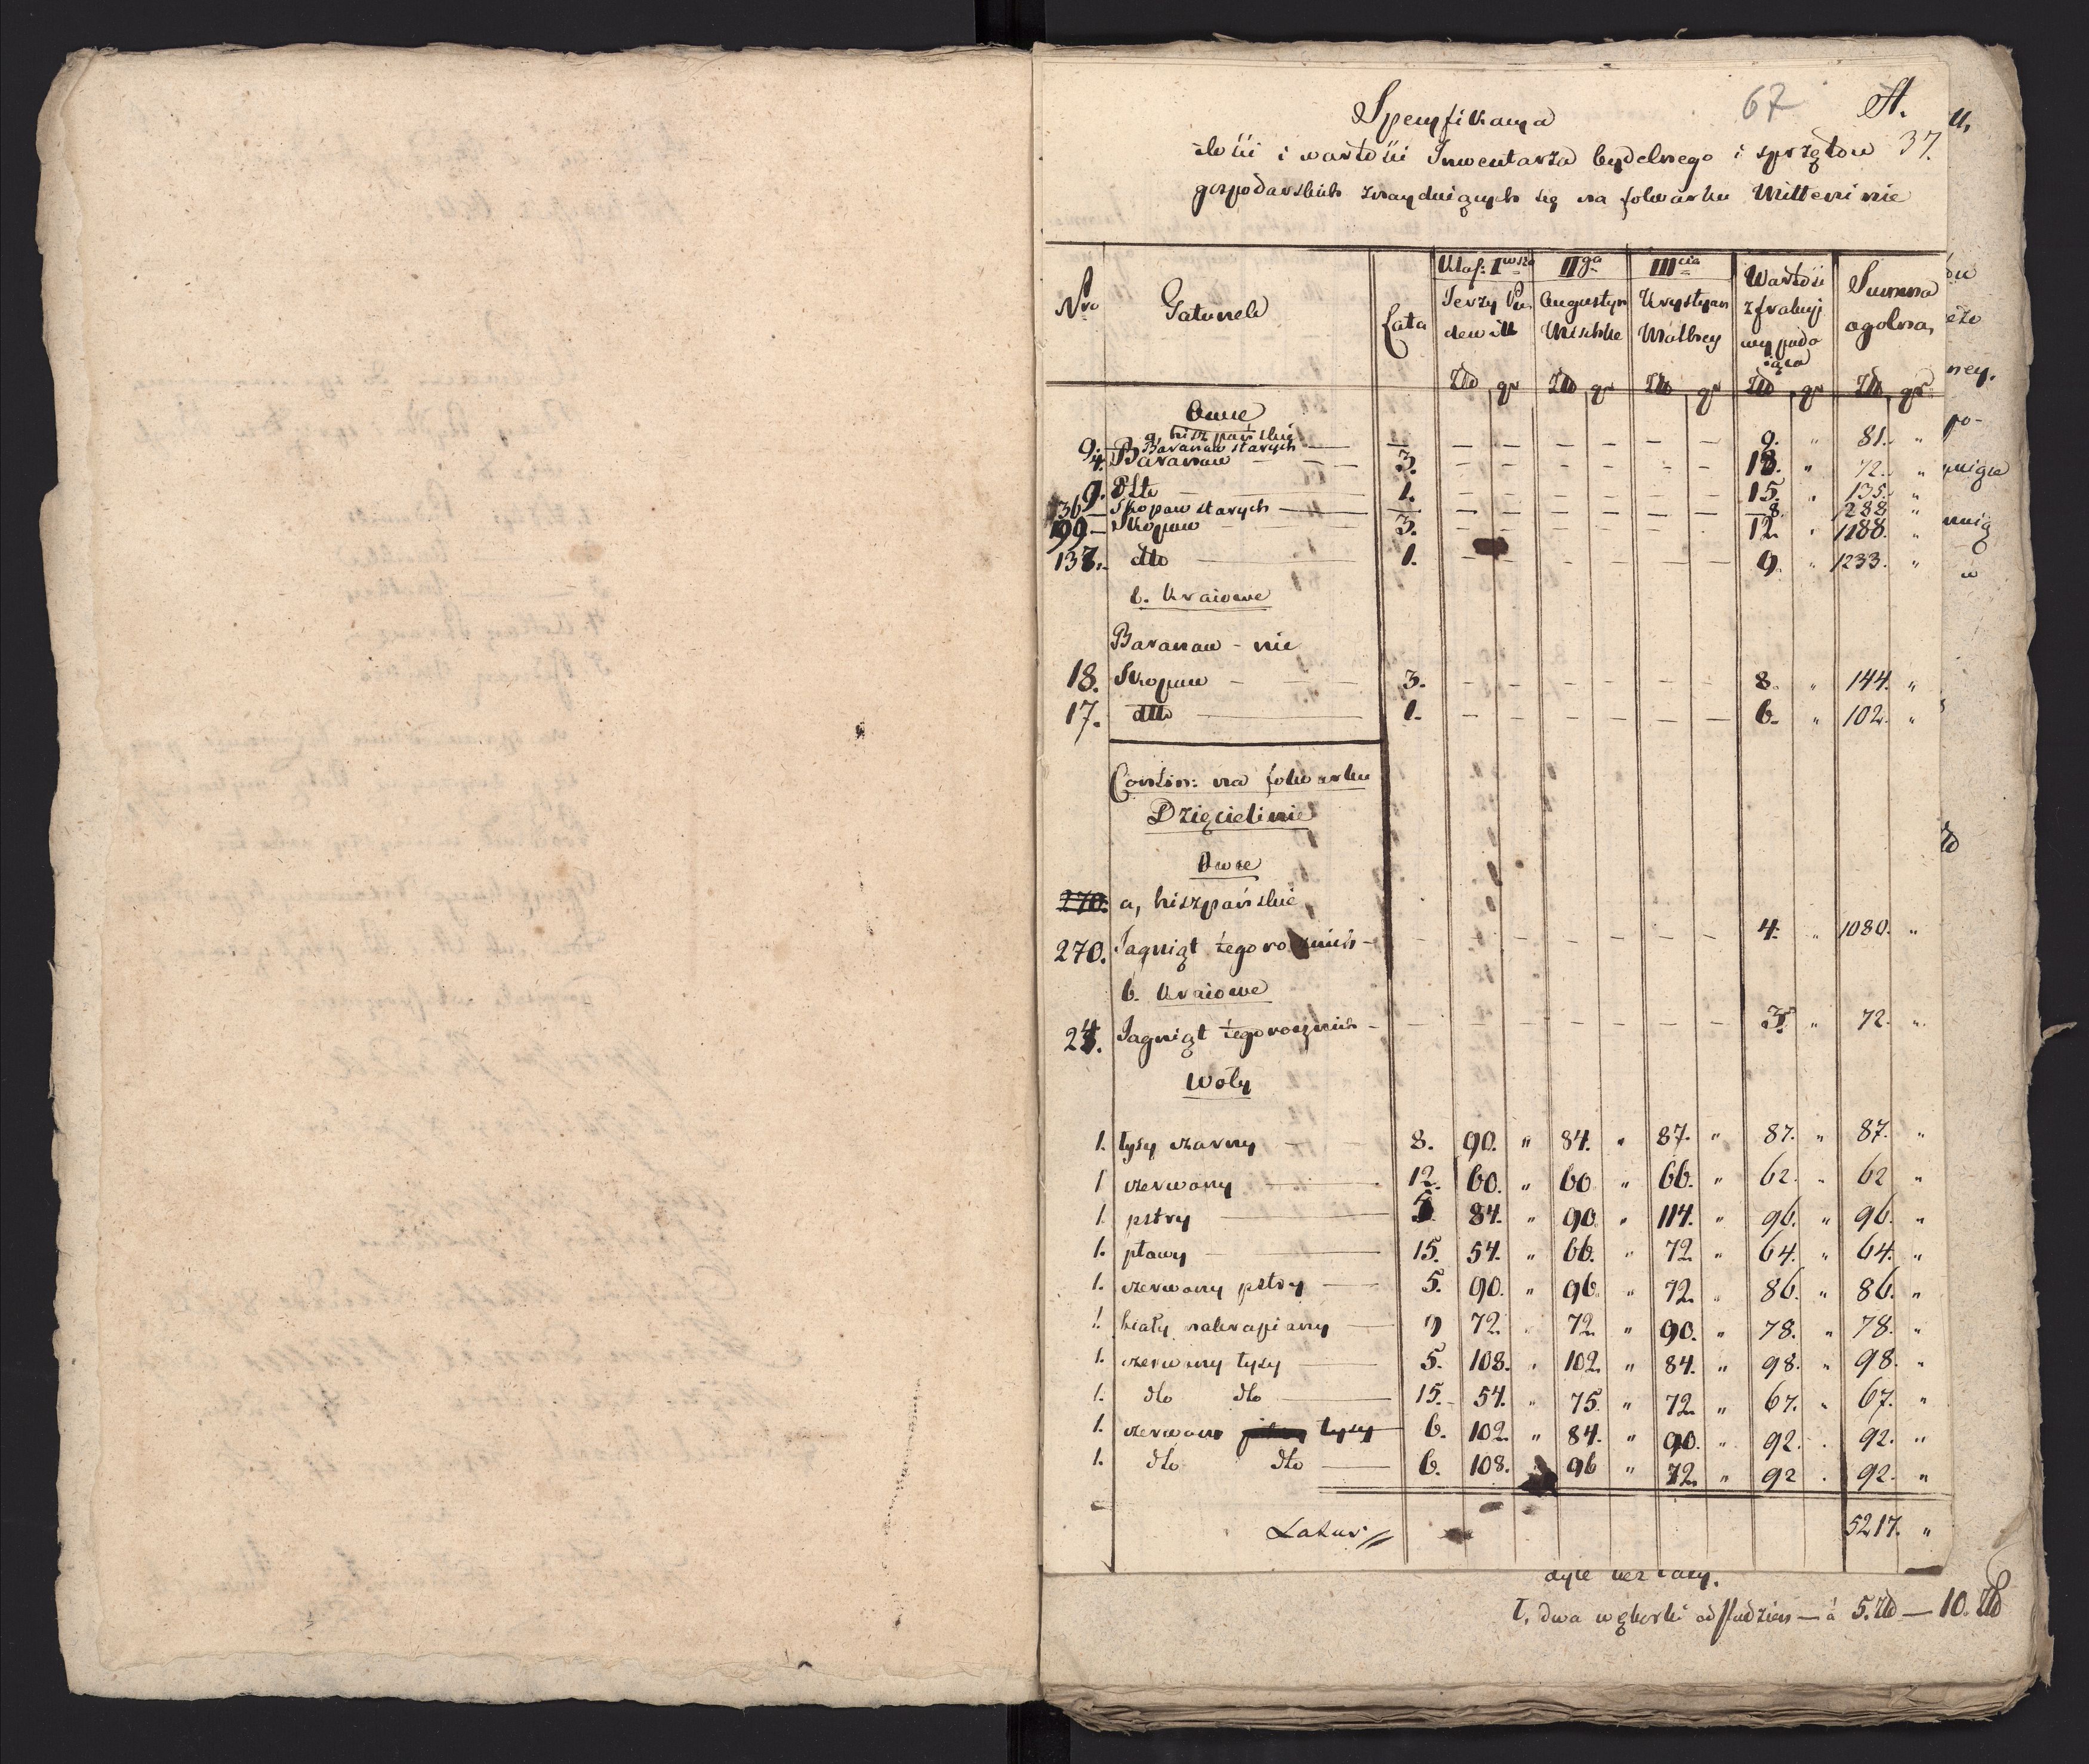 67 A.
Specyfikacya
ilości i wartości Inwentarza bydelnego i sprzętow 37.
gospodarskich znayduiących się na folwarku Mitteninie
Nro Gatunek Lata Klas: Iwsza IIga IIIcia Wartość z frakcyj wypadaiąca Summa ogolna,
Jerzy Augustyn Mischke Krystyan
Złł gr Złł gr Złł gr Złł gr Złł gr
Owce
a, hiszpańskie
9. Baranow starych — — — — — — — 9. " 81. "
4. Baranow — 3. — — — — — — 18. " 72. "
9. Dtto — 1. — — — — — — 15. " 135. "
36 Skopow starych — — — — — — — 8. " 288. "
99 — Skopow — 3. — — — — — — 12. " 1188. "
137. dtto — 1. — — — — — — 9. " 1233. "
b. Kraiowe
Baranow - nic
18. Skopow — 3. — — — — — — 8. " 144. "
17. dtto — 1. — — — — — — 6. " 102. "
Contin: na folwarku
Dzięcielinie
Owce
270. a, hiszpańskie,
270. Jagniąt tegorocznich — — — — — — — 4. " 1080. "
b. Kraiowe
24. Jagniąt tegorocznich — — — — — — — 3. " 72. "
Woły
1. łysy czarny — 8. 90. " 84. " 87. " 87. " 87. "
1 czerwony — 12. 60. " 60 " 66. " 62. " 62 "
1. pstry — 5. 84. " 90. " 114. " 96. " 96. "
1. płowy — 15. 54. " 66. " 72. " 64. " 64. "
1. czerwony pstry — 5. 90. " 96. " 72. " 86. " 86. "
1. biały nakrapiany — 9 72. " 72. " 90. " 78. " 78. "
1. czerwony łysy — 5. 108. " 102. " 84. " 98. " 98. "
1. dto dto — 15. 54. " 75. " 72. " 67. " 67. "
1. czerwono łysy — 6. 102. " 84. " 90. " 92. " 92. "
1. dto dto — 6. 108. " 96 " 72. " 92 " 92. "
Latus 5217. "
dyle bez
t. dwa węborki od studzien — á 5. Złł — 10. Złł